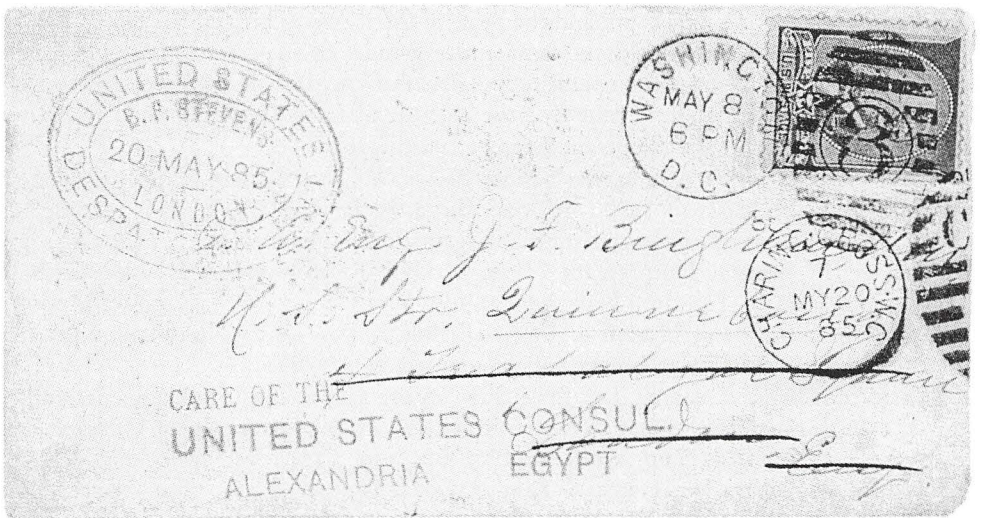 UNITED STATES
B. F. STEVENS
20 MAY 85
LONDON
DESPAT
WASHINGT
MAY 8
6 PM
D.C.
CHARING CROSS.W.C
7
MY20
85
Eng J. F. Bingham
U. S. Str. Quinnebaug
4 Trafalgar Square
London
Eng.
CARE OF THE
UNITED STATES CONSUL.
ALEXANDRIA EGYPT